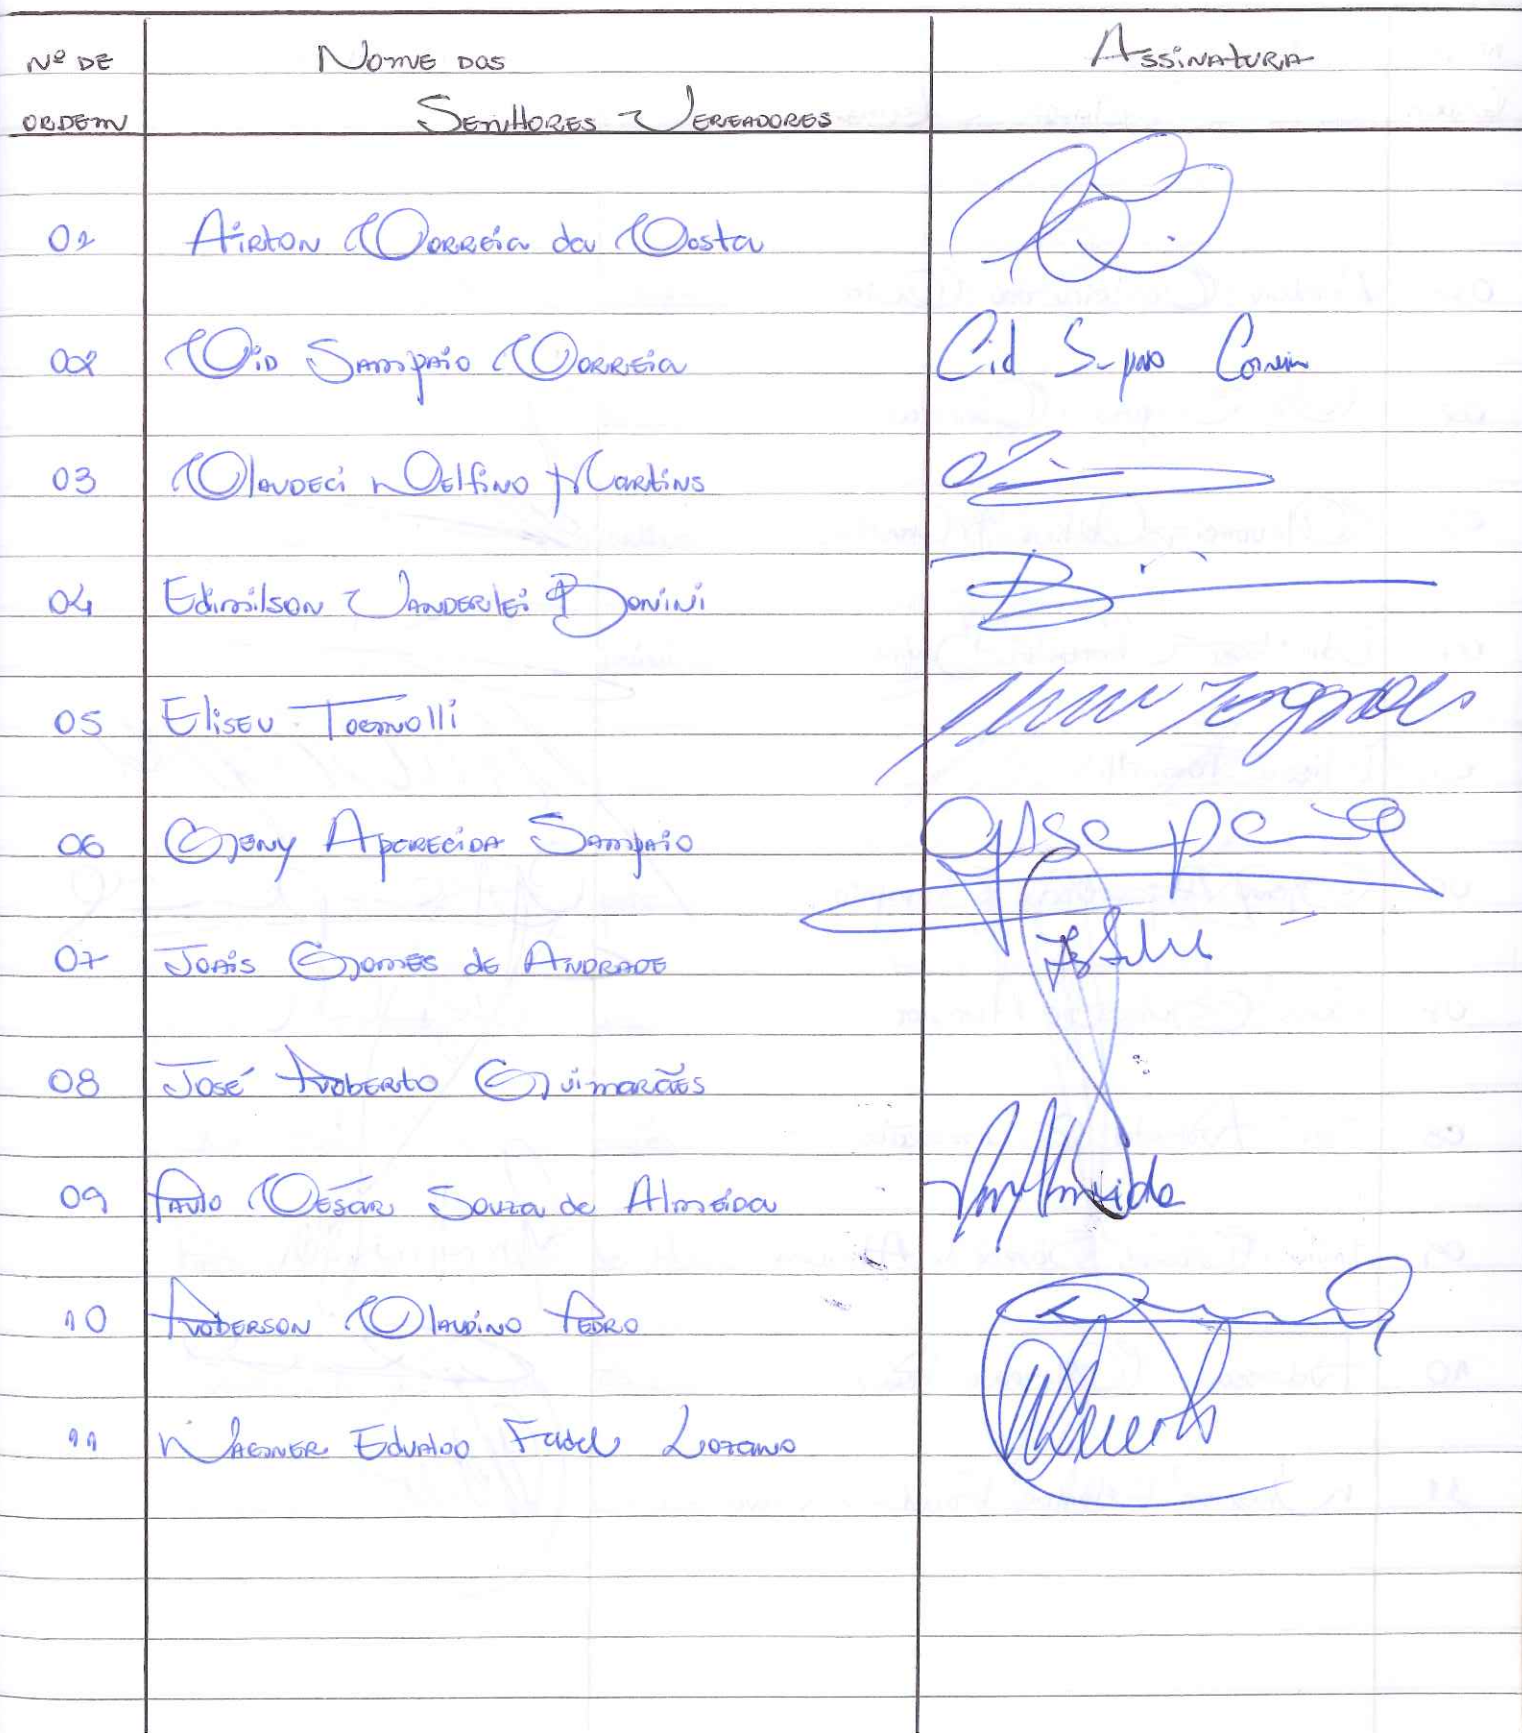 Nº DE Nome dos Assinatura
ordem Senhores Vereadores
01 Airton Correia da Costa
02 Cid Sampaio Correia Cid Correia
03 Claudeci Delfino Martins
04 Edimilson Vanderlei Bonini
05 Eliseu Tognolli
06 Geny Aparecida Sampaio
07 Joais Gomes de Andrade
08 José Roberto Guimarães
09 Paulo César Souza de Almeida Almeida
10 Roberson Claudino Pedro
11 Wagner Edualdo Fadel Lozano